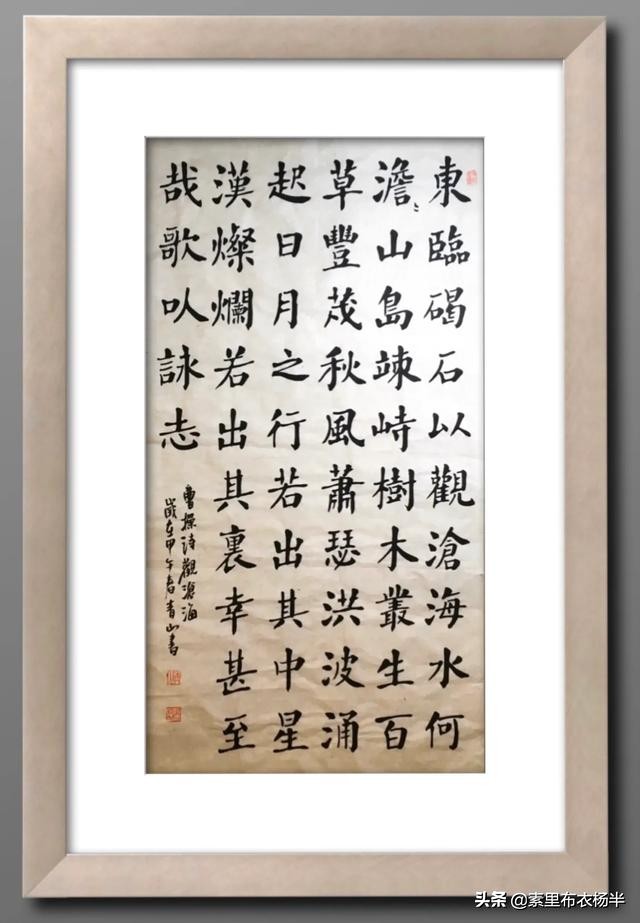 東臨碣石以觀滄海水何
澹〻山島竦峙樹木叢生百
草豐茂秋風蕭瑟洪波涌
起日月之行若出其中星
漢燦爛若出其裏幸甚至
哉歌以詠志
曹操詩觀滄海
歲在甲午春青山書
头条 @素里布衣杨半